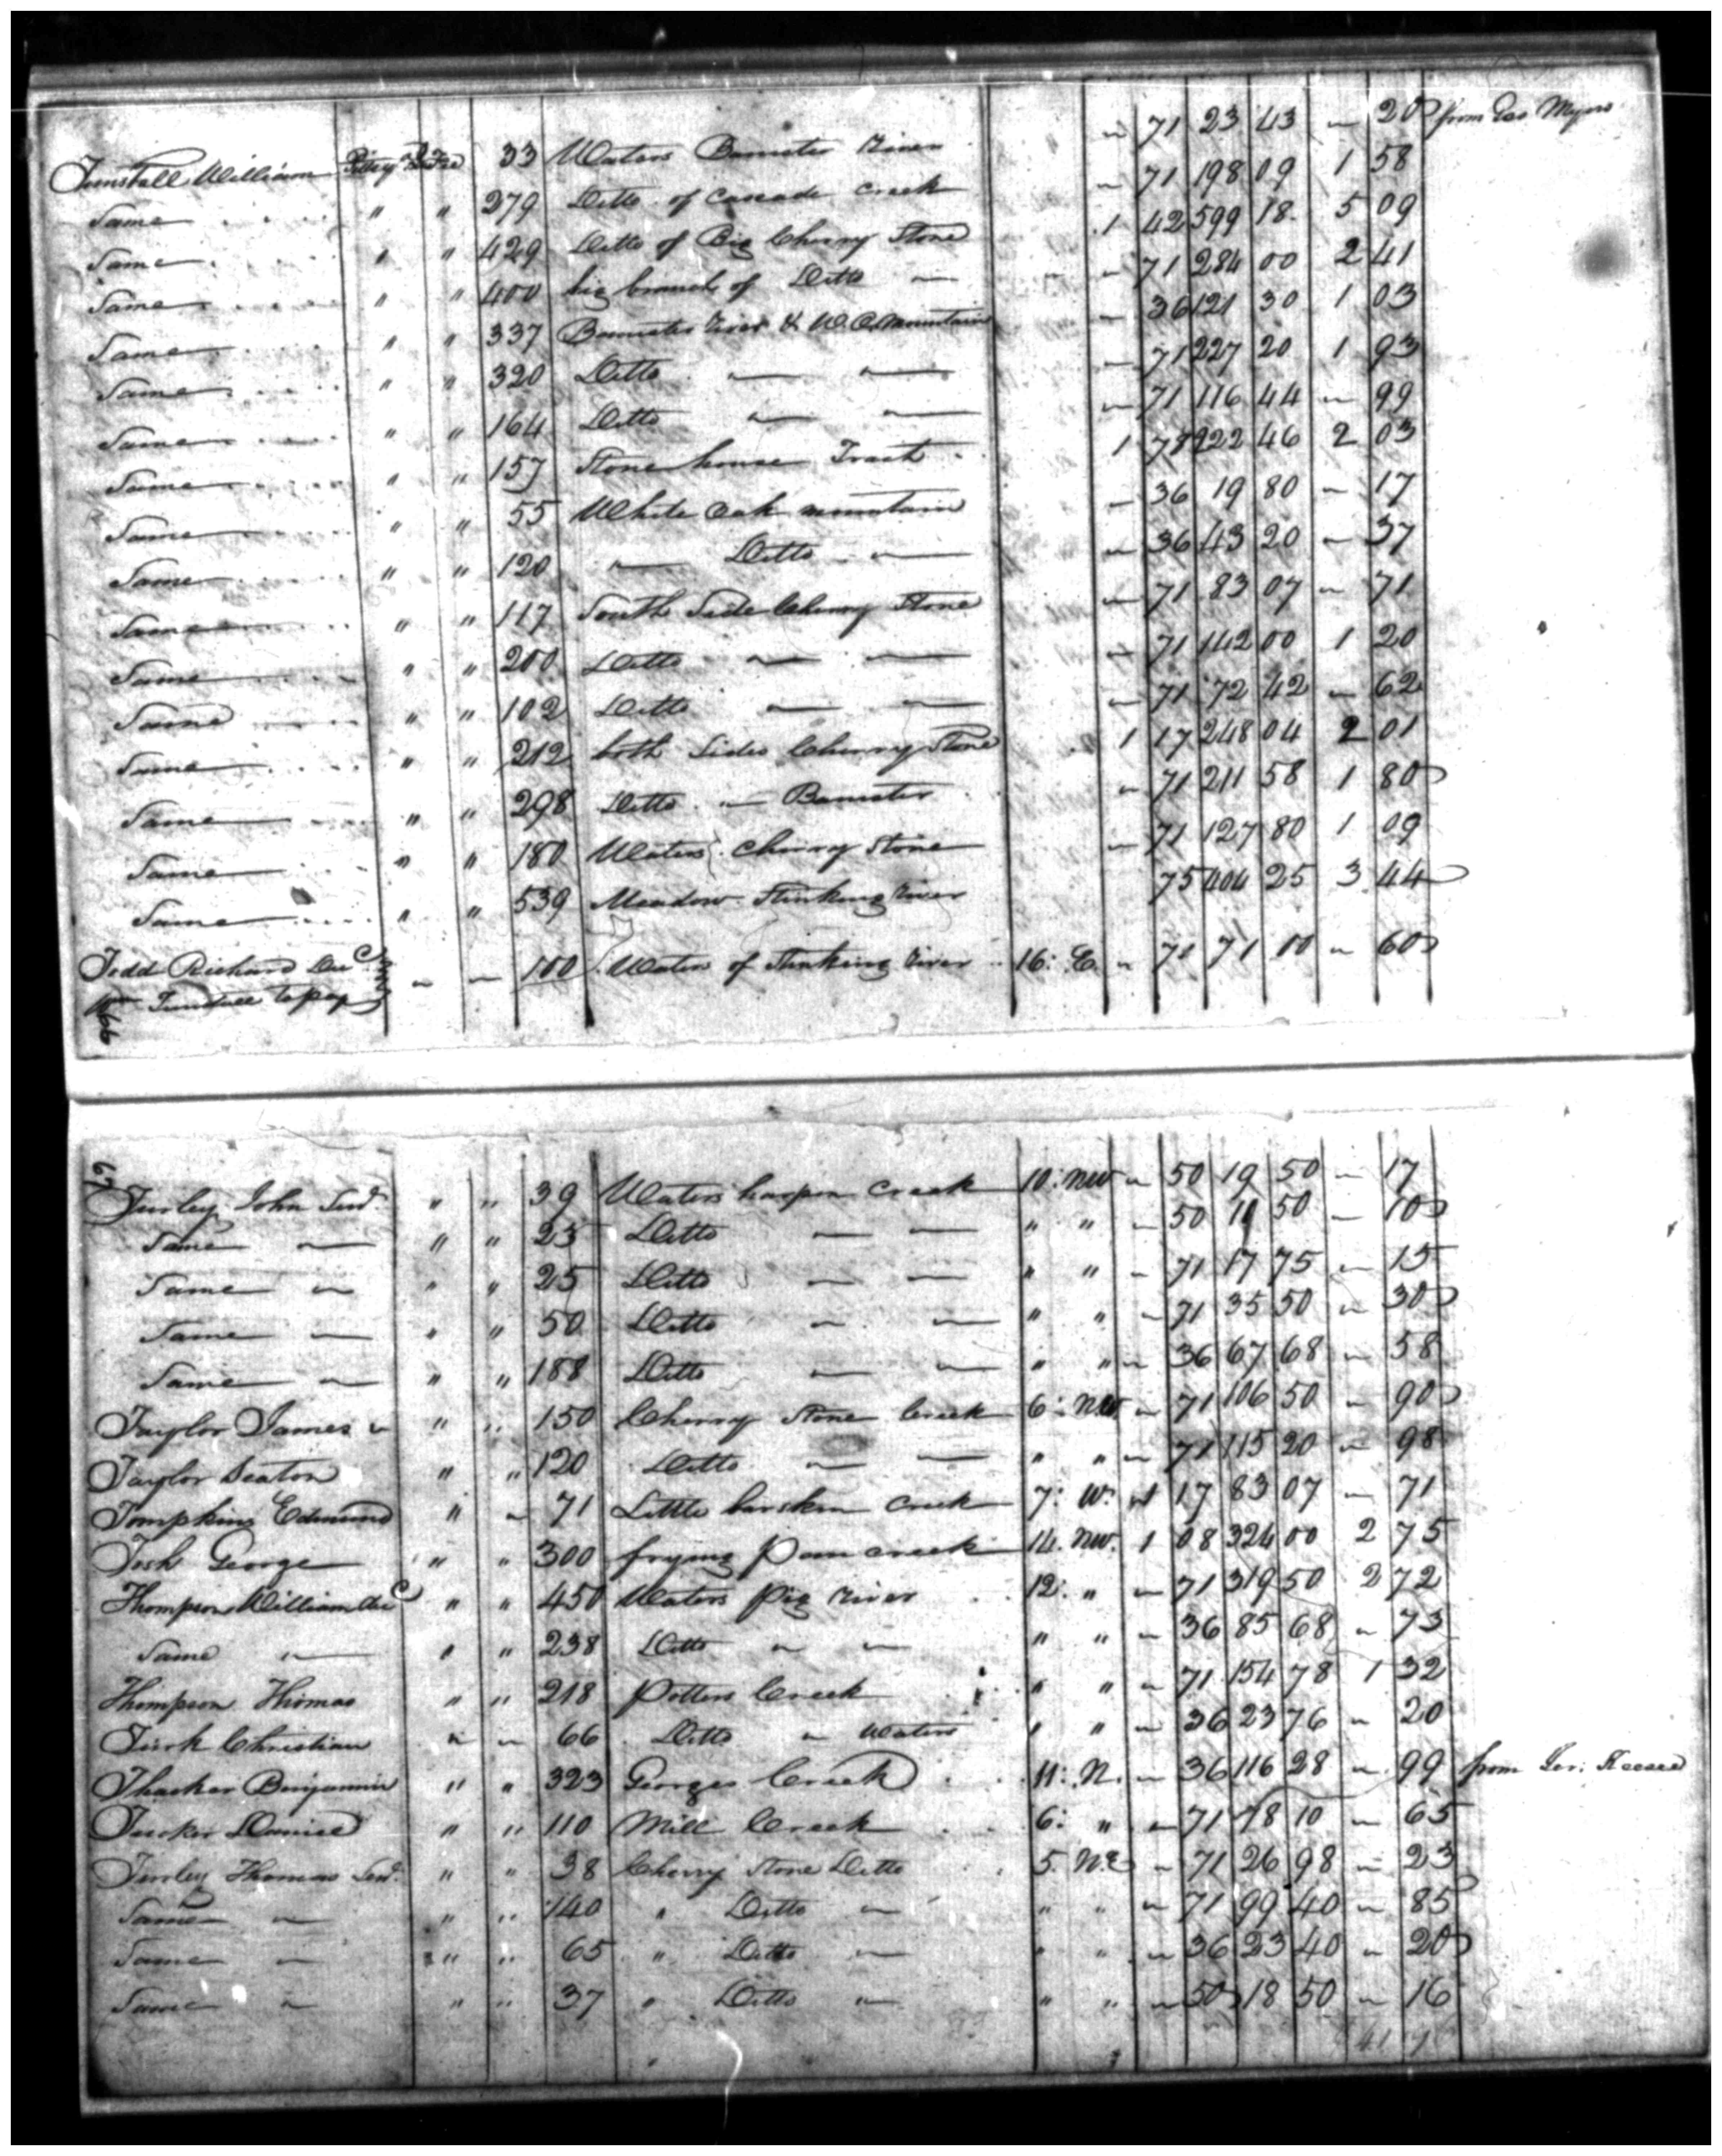 Tunstall William Pittsyla Fee 33 Waters Banister River — 71 23 43 — 20 from Geo Myers
Same " " 279 Ditto of Cascade Creek — 71 198 09 1 58
Same " " 429 Ditto of Big Cherry Stone 1 42 599 18 5 09
Same " " 400 big branch of Ditto — — 71 284 00 2 41
Same " " 337 Banister River & W. O. Mountain — 36 121 30 1 03
Same " " 320 Ditto — — — 71 227 20 1 93
Same " " 164 Ditto — — — 71 116 44 — 99
Same " " 157 Stone house Tract 1 78 222 46 2 03
Same " " 55 White Oak mountain — 36 19 80 — 17
Same " " 120 — Ditto — — 36 43 20 — 37
Same " " 117 South Side Cherry Stone — 71 83 07 — 71
Same " " 200 Ditto — — — 71 142 00 1 20
Same " " 102 Ditto — — — 71 72 42 — 62
Same " " 212 both Sides Cherry Stone 1 17 248 04 2 01
Same " " 298 Ditto — Banister — 71 211 58 1 80
Same " " 180 Waters Cherry Stone — 71 127 80 1 09
Same " " 539 Meadow Stinking River 75 404 25 3 44
Todd Richard Dec — — 100 Waters of Stinking River 16: E — 71 71 00 — 60
Wm Tunstall to pay
66
67
Turley John Senr " " 39 Waters harpen Creek 10: NW — 50 19 50 — 17
Same — " " 23 Ditto — — " " — 50 11 50 — 10
Same — " " 25 Ditto — — " " — 71 17 75 — 15
Same — " " 50 Ditto — — " " — 71 35 50 — 30
Same — " " 188 Ditto — — " " — 36 67 68 — 58
Taylor James " " 150 Cherry Stone Creek 6: NW — 71 106 50 — 90
Taylor Seaton " " 120 Ditto — — " " — 71 115 20 — 98
Tompkins Edmund " — 71 Little barskin Creek 7: W: 1 17 83 07 — 71
Tosh George " " 300 frying Pan creek 14. NW. 1 08 324 00 2 75
Thompson William Dec " " 450 Waters Pig River 12: " — 71 319 50 2 72
Same — " " 238 Ditto — — " " — 36 85 68 — 73
Thompson Thomas " " 218 Potters Creek " " — 71 154 78 1 32
Turk Christian " — 66 Ditto — Waters " " — 36 23 76 — 20
Thacker Benjamin " " 323 Georges Creek 11: N. — 36 116 28 — 99 from Jer: Keesee
Tucker Daniel " " 110 Mill Creek 6: " — 71 78 10 — 65
Turley Thomas Senr " " 38 Cherry Stone Ditto 5. NE — 71 26 98 — 23
Same — " " 140 " Ditto — " " — 71 99 40 — 85
Same — " " 65 " Ditto — " " — 36 23 40 — 20
Same — " " 37 " Ditto — " " — 50 18 50 — 16